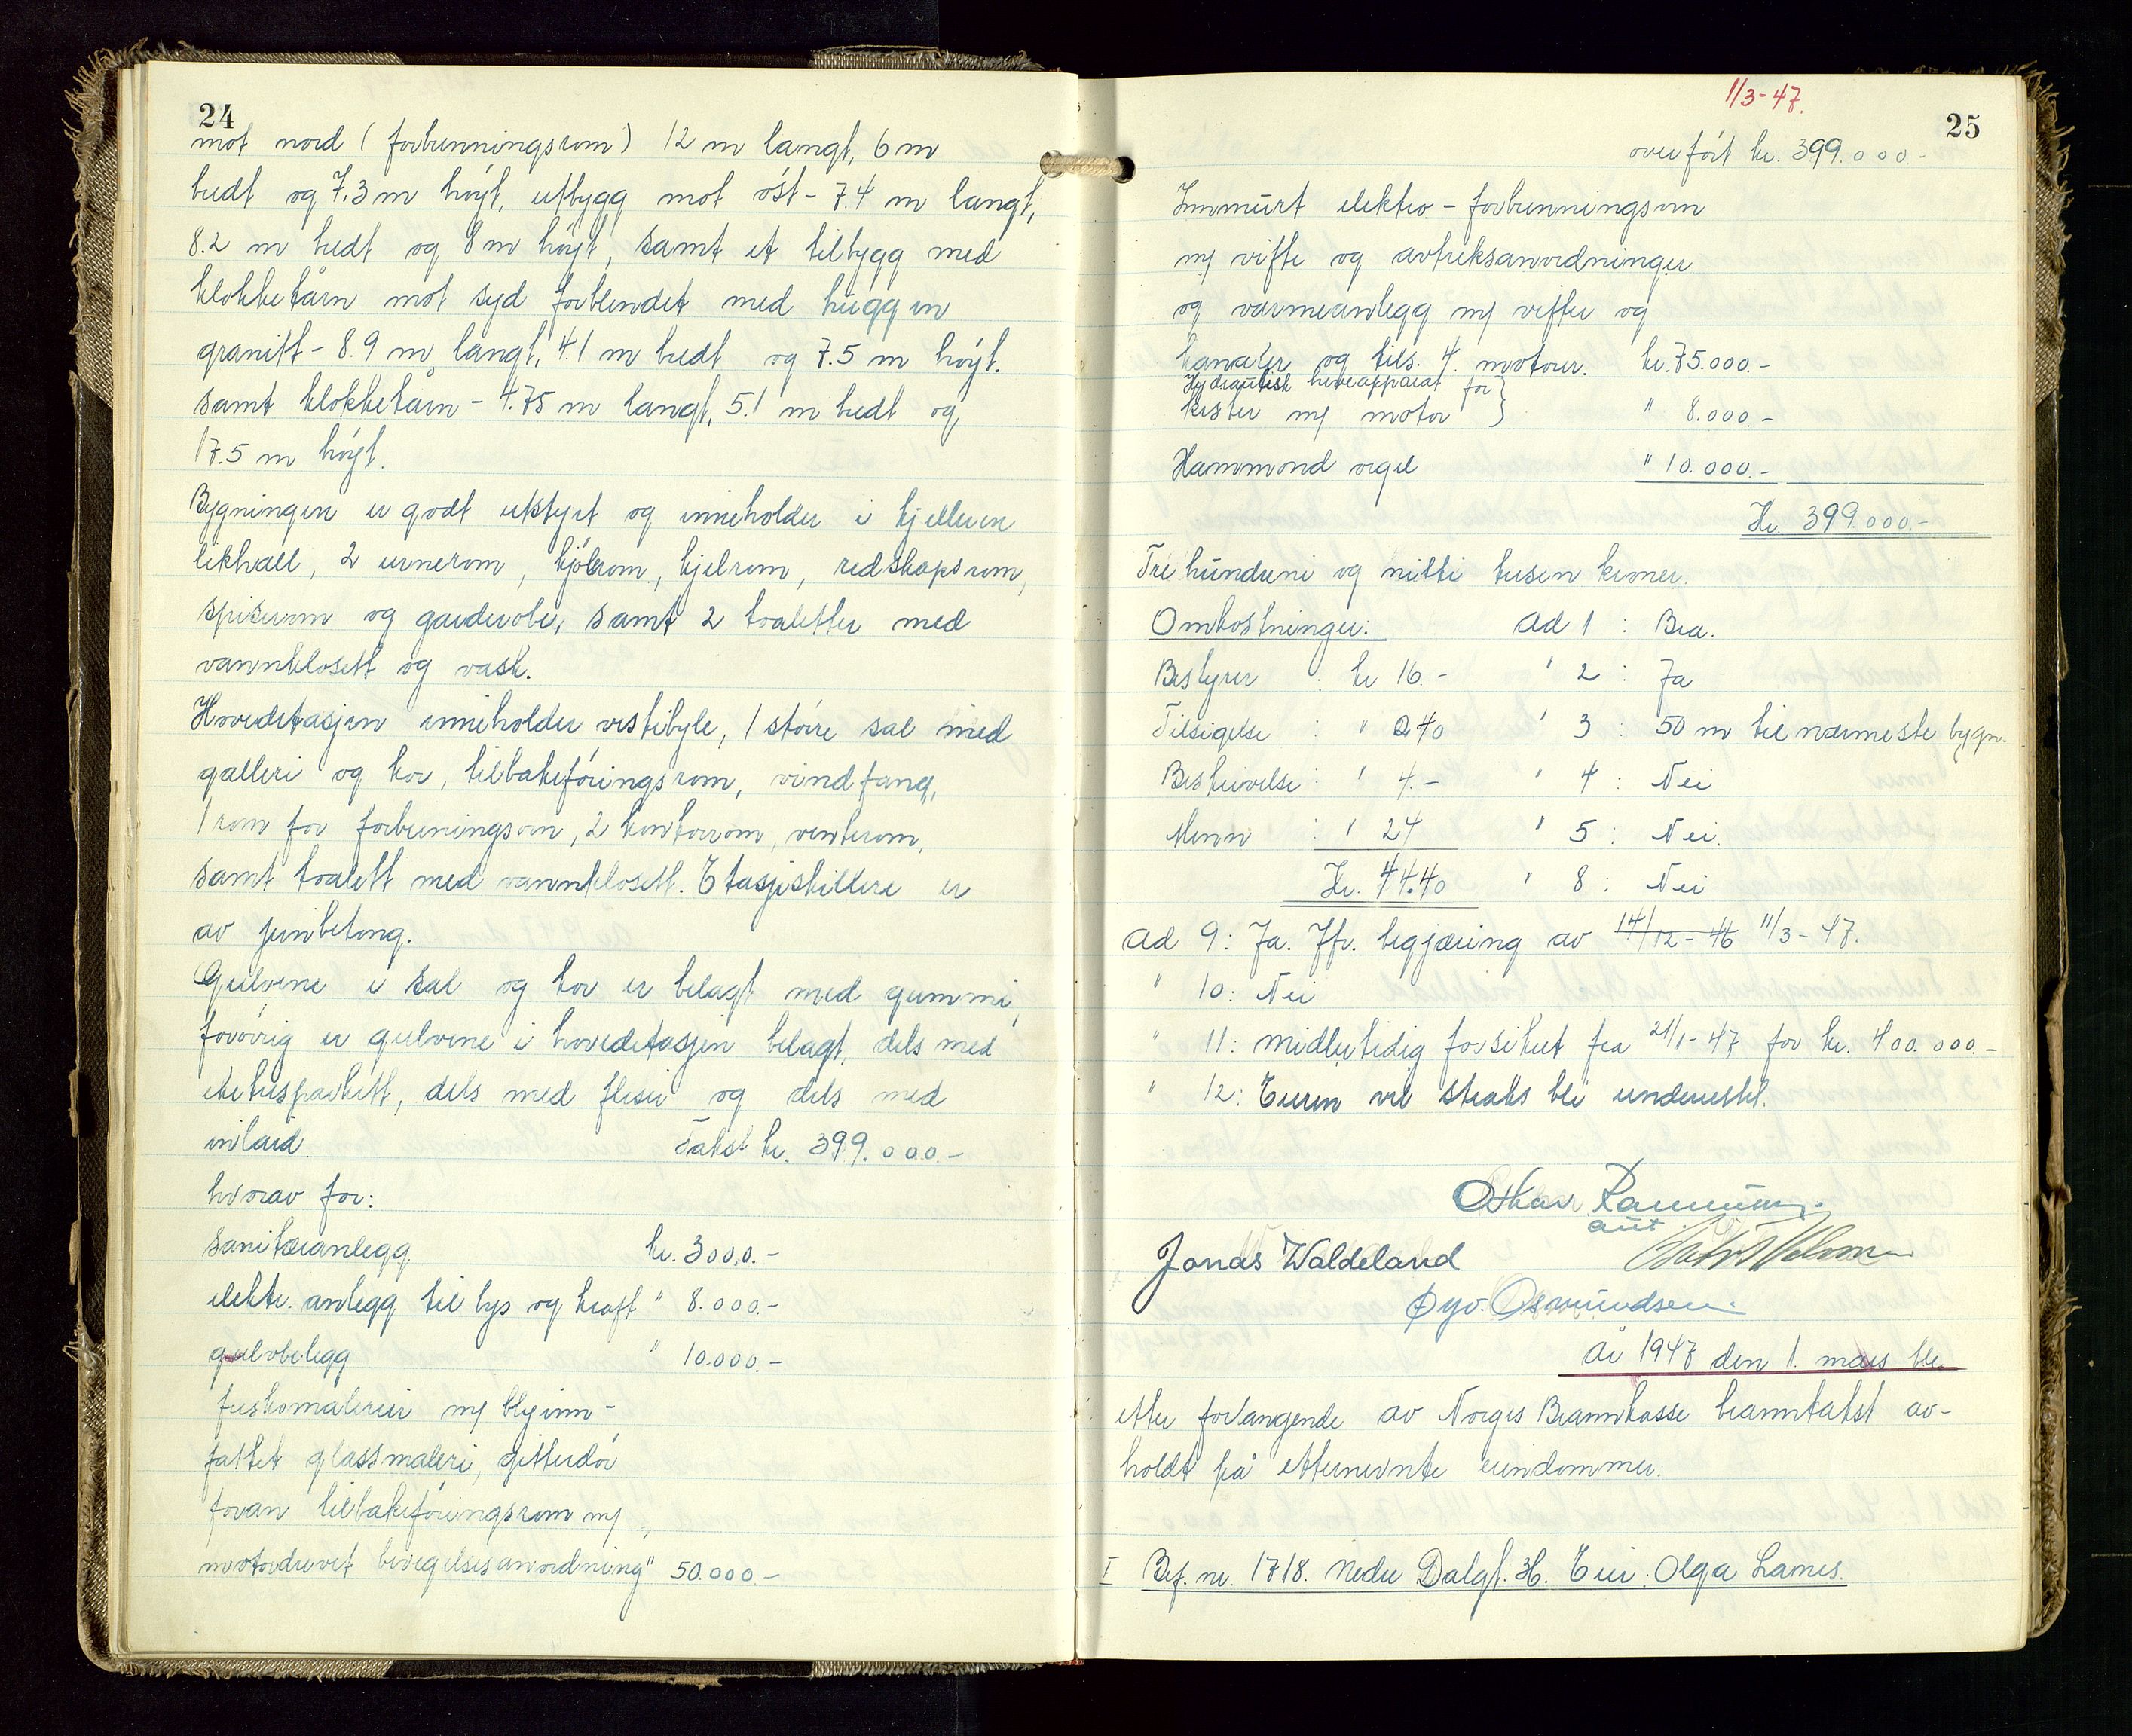 24
mot nord (forbrenningsrom) 12 m langt, 6 m
bredt og 7.3 m høyt, utbygg mot øst - 7.4 m langt,
8.2 m bredt og 8 m høyt, samt et tilbygg med
klokketårn mot syd forblendet med huggen
granitt - 8.9 m langt, 4.1 m bredt og 7.5 m høyt.
samt klokketårn - 4.75 m langt, 5.1 m bredt og
17.5 m høyt.
Bygningen er godt utstyrt og inneholder i kjelleren
likhall, 2 urnerom, kjølerom, kjelrom, redskapsrom,
spiserom og garderobe, samt 2 toaletter med
vannklosett og vask.
Hovedetasjen inneholder vestibyle, 1 større sal med
galleri og kor, tilbakeføringsrom, vindfang,
1 rom for forbrenningsovn, 2 kontorrom, venterom,
samt toalett med vannklosett. Etasjeskillere er
av jernbetong.
Gulvene i sal og kor er belagt med gummi,
forøvrig er gulvene i hovedetasjen belagt, dels med
eikehusparkett, dels med fliser og dels med
inlaid. Takst kr. 399.000.-
hvorav for:
sanitæranlegg kr. 3000.-
elektr. anlegg til lys og kraft " 8.000.-
gulvbelegg " 10.000.-
freskomalerier m/ blyinn-
fattet glassmaleri, gitterdør
foran tilbakeføringsrom m/
motordrevet bevegelsesanordning " 50.000.-
11/3-47.
25
overført kr. 399.000.-
Innmurt elektro-forbrenningsovn
m/ vifte og avtreksanordninger
og varmeanlegg m/ vifter og
kanaler og tils. 4. motorer. kr. 75.000.-
Hydraulisk heveapparat for }
kister m/ motor } " 8.000.-
Hammond orgel " 10.000.-
Kr. 399.000.-
Tre hundreni og nitti tusen kroner.
Omkostninger: ad 1 : Bra.
Bestyrer : kr 16.- " 2 : Ja
Tilsigelse : " 0.40 " 3 : 50 m til nærmeste bygn.
Beskrivelse : " 4.- " 4 : Nei
Menn : " 24 " 5 : Nei.
Kr. 44.40 " 8 : Nei
ad 9: Ja. Jfr. begjæring av 14/12-46 11/3-47.
" 10: Nei
" 11: midlertidig forsikret fra 21/1-47 for kr. 400.000.-
" 12: Eieren vil straks bli underrettet.
Oskar
aut.
Jonas Waldeland
Øyv. Osmundsen.
År 1947 den 11. mars ble
etter forlangende av Norges Brannkasse branntakst av-
holdt på etternevnte eiendommer:
I Bef. nr. 1718. Nedre Dalgt. 36. Eier: Olga Lames.